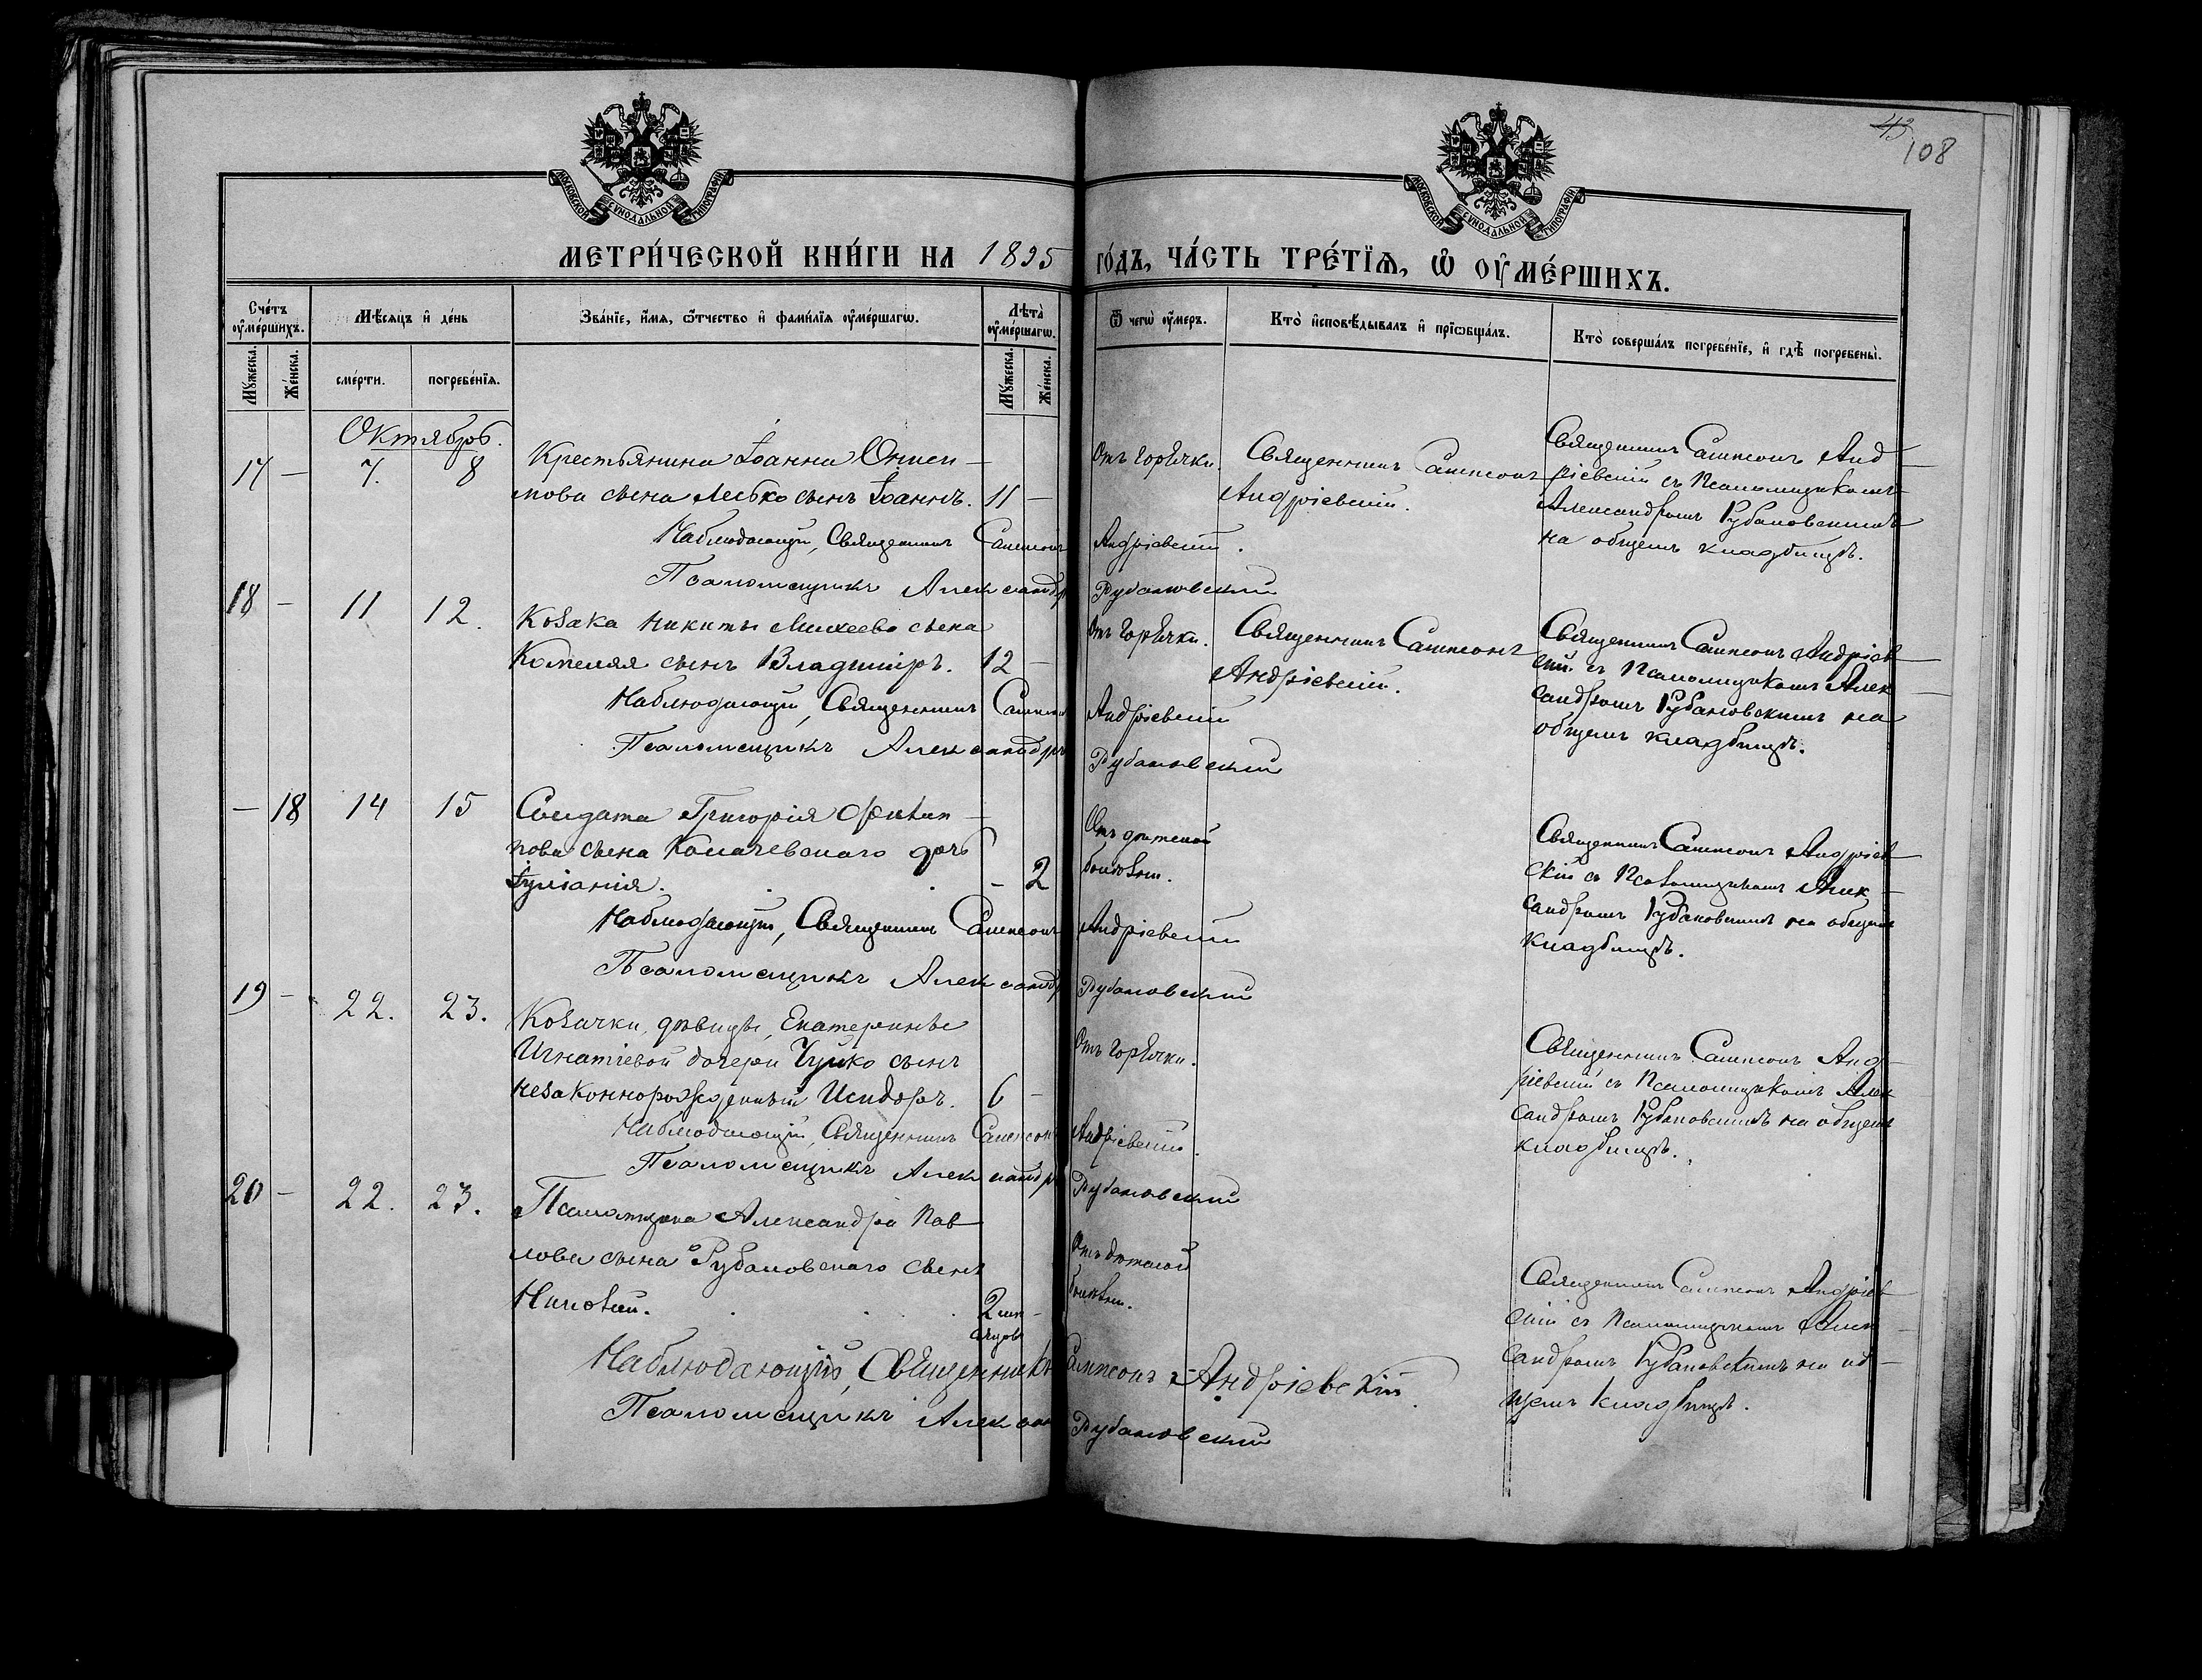 43
108
МОСКОВСКОЙ СѴНОДАЛЬНОЙ ТИПОГРАФІИ
МОСКОВСКОЙ СѴНОДАЛЬНОЙ ТИПОГРАФІИ
МЕТРИ́ЧЕСКОЙ КНИ́ГИ НА 1895 ГО́ДЪ, ЧА́СТЬ ТРЕ́ТЇѦ, Ѡ ОУ҆МЕ́РШИХЪ.
Сче́тъ оу҆ме́ршихъ.
Мѣ́сяцъ и҆ де́нь
Зва́нїе, и҆́мя, ѻ҆́тчество и҆ фами́лїя оу҆ме́ршагѡ.
Лѣта̀ оу҆ме́ршагѡ.
Ѿ чегѡ̀ оу҆́меръ.
Кто̀ и҆сповѣ́дывалъ и҆ прїѡбща́лъ.
Кто̀ соверша́лъ погребе́нїе, и҆ гдѣ̀ погребены̀.
Мꙋ́жеска.
Же́нска.
сме́рти.
погребе́нїя.
Мꙋ́жеска.
Же́нска.
Октябрь.
17 — 7. 8
Крестьянина Іоанна Ониси-
мова сына Лесько сынъ Іоаннъ. 11 —
Отъ горячки.
Священникъ Сампсонъ
Андріевскій.
Священникъ Сампсонъ Анд-
ріевскій съ Псаломщикомъ
Александромъ Рубановскимъ
на общемъ кладбищѣ.
Наблюдающій, Священникъ Сампсонъ Андріевскій.
Псаломщикъ Александръ Рубановскій
18 — 11 12.
Козака Никиты Михеева сына
сынъ Владиміръ. 12 —
Отъ горячки.
Священникъ Сампсонъ
Андріевскій.
Священникъ Сампсонъ Андріев-
скій съ Псаломщикомъ Алек-
сандромъ Рубановскимъ на
общемъ кладбищѣ.
Наблюдающій, Священникъ Сампсонъ Андріевскій
Псаломщикъ Александръ Рубановскій
— 18 14 15
Солдата Григорія Филип-
пова сына дочь
Іуліанія. — 2
Отъ дѣтской
болѣзни.
Священникъ Сампсонъ Андріев-
скій съ Псаломщикомъ Алек-
сандромъ Рубановскимъ на общемъ
кладбищѣ.
Наблюдающій, Священникъ Сампсонъ Андріевскій
Псаломщикъ Александръ Рубановскій
19 — 22. 23.
Козачки, дѣвицы, Екатерины
Игнатіевой дочери Чуйко сынъ
незаконнорожденный Исидоръ. 6 —
Отъ горячки.
Священникъ Сампсонъ Анд-
ріевскій съ Псаломщикомъ Алек-
сандромъ Рубановскимъ на общемъ
кладбищѣ.
Наблюдающій, Священникъ Сампсонъ Андріевскій.
Псаломщикъ Александръ Рубановскій
20 — 22. 23.
Псаломщика Александра Пав-
лова сына Рубановскаго сынъ
Николай. 2 мѣ-
сяцовъ
Отъ дѣтской
болѣзни.
Священникъ Сампсонъ Андріев-
скій съ Псаломщикомъ Алек-
сандромъ Рубановскимъ на об-
щемъ кладбищѣ.
Наблюдающій, Священникъ Сампсонъ Андріевскій.
Псаломщикъ Александръ Рубановскій